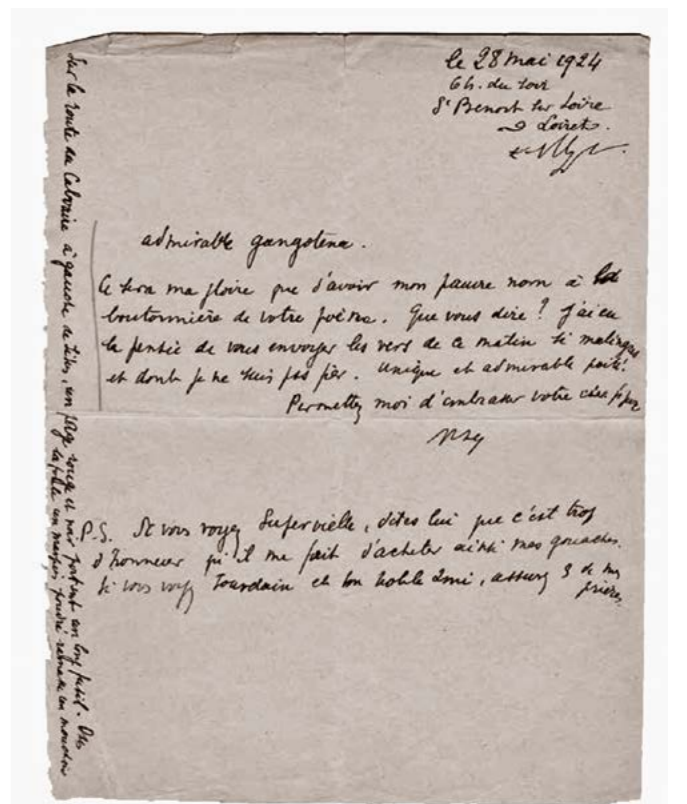 le 28 mai 1924
St Benoit sur Loire
Loiret.
admirable gangotena.
Ce sera ma gloire que d'avoir mon pauvre nom à la
boutonnière de votre poème. Que vous dire ? J'ai eu
la pensée de vous envoyer les vers de ce matin si malingres
et dont je ne suis pas fier. Unique et admirable poète !
Permettez moi d'embrasser votre cher
P.S. Si vous voyez Supervielle, dites lui que c'est trop
d'honneur qu'il me fait d'acheter ainsi mes gouaches.
Si vous voyez Jourdain et son noble ami, assurez de mes
prières
Sur la route du Calvaire à gauche de un page rouge et noir portant un long fusil. Dans
un marquis poudré ramasse un mouchoir